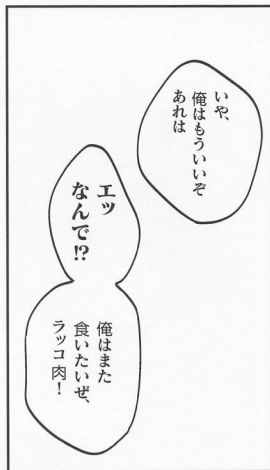 いや、
俺はもういいぞ
あれは
エッ
なんで!?
俺はまた
食いたいぜ、
ラッコ肉!